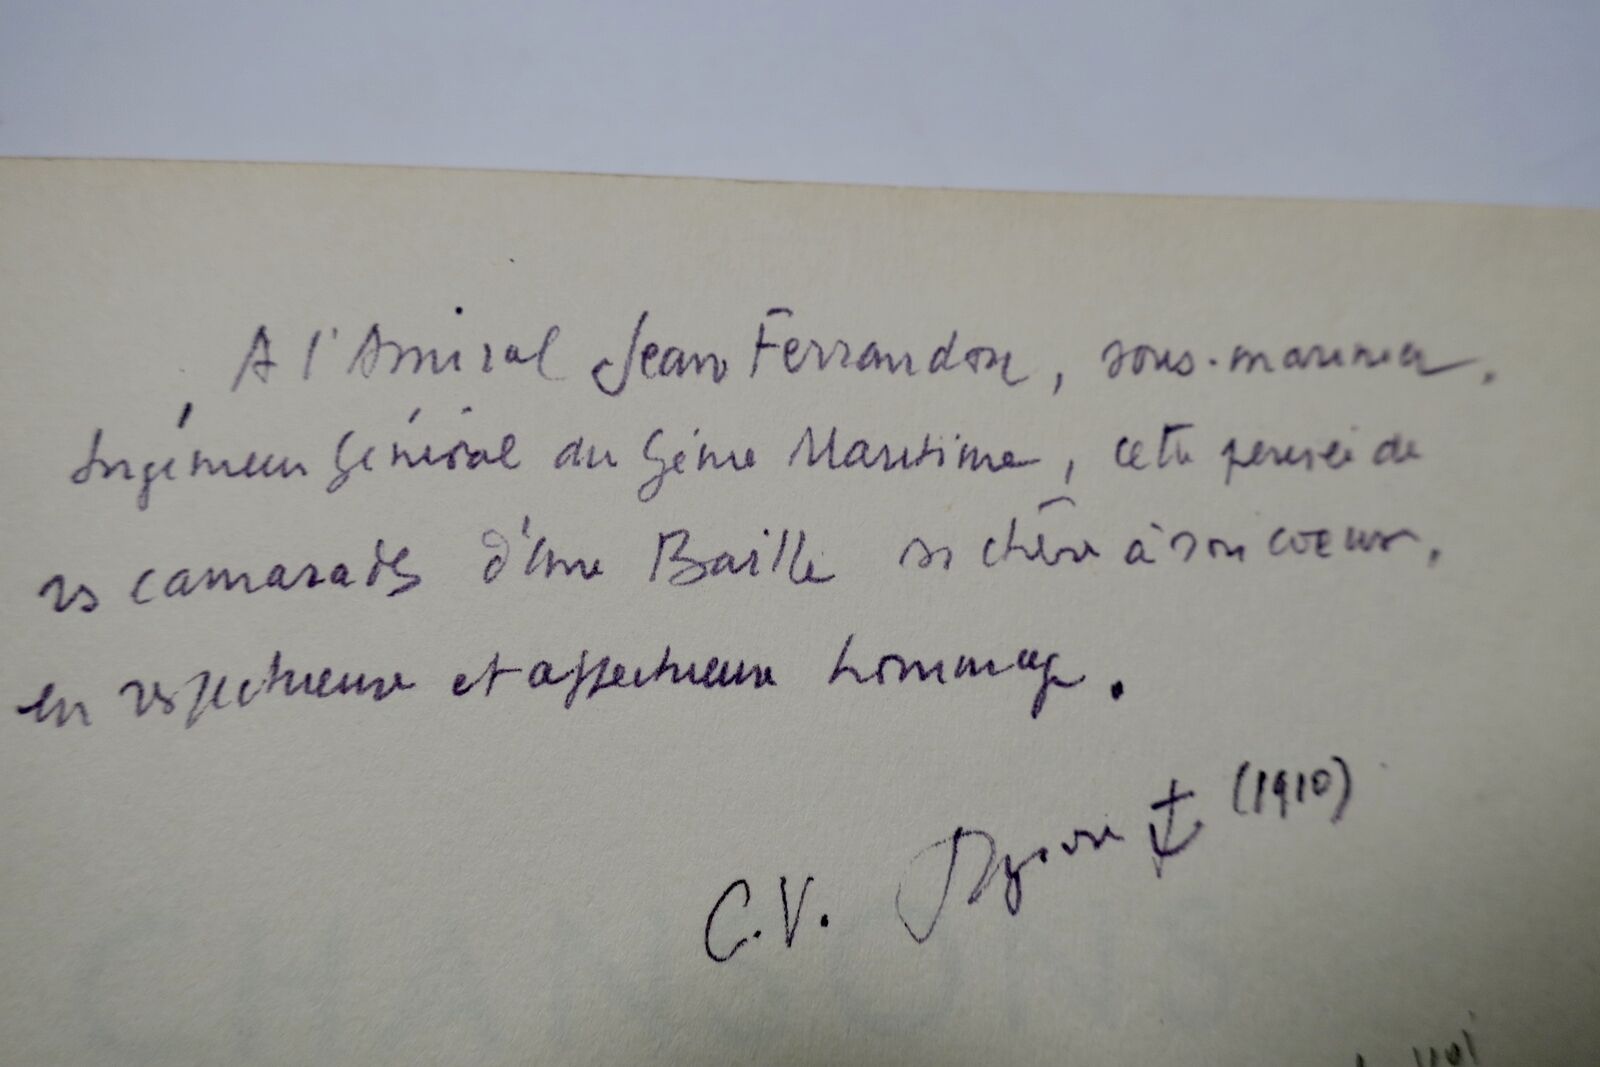 A l'Amiral Jean Ferrandon, sous-marinier,
Ingénieur Général du Génie Maritime, cette pensée de
ses camarades d'une Baille si chère à son coeur,
en respectueux et affectueux hommage.
C.V. (1910)